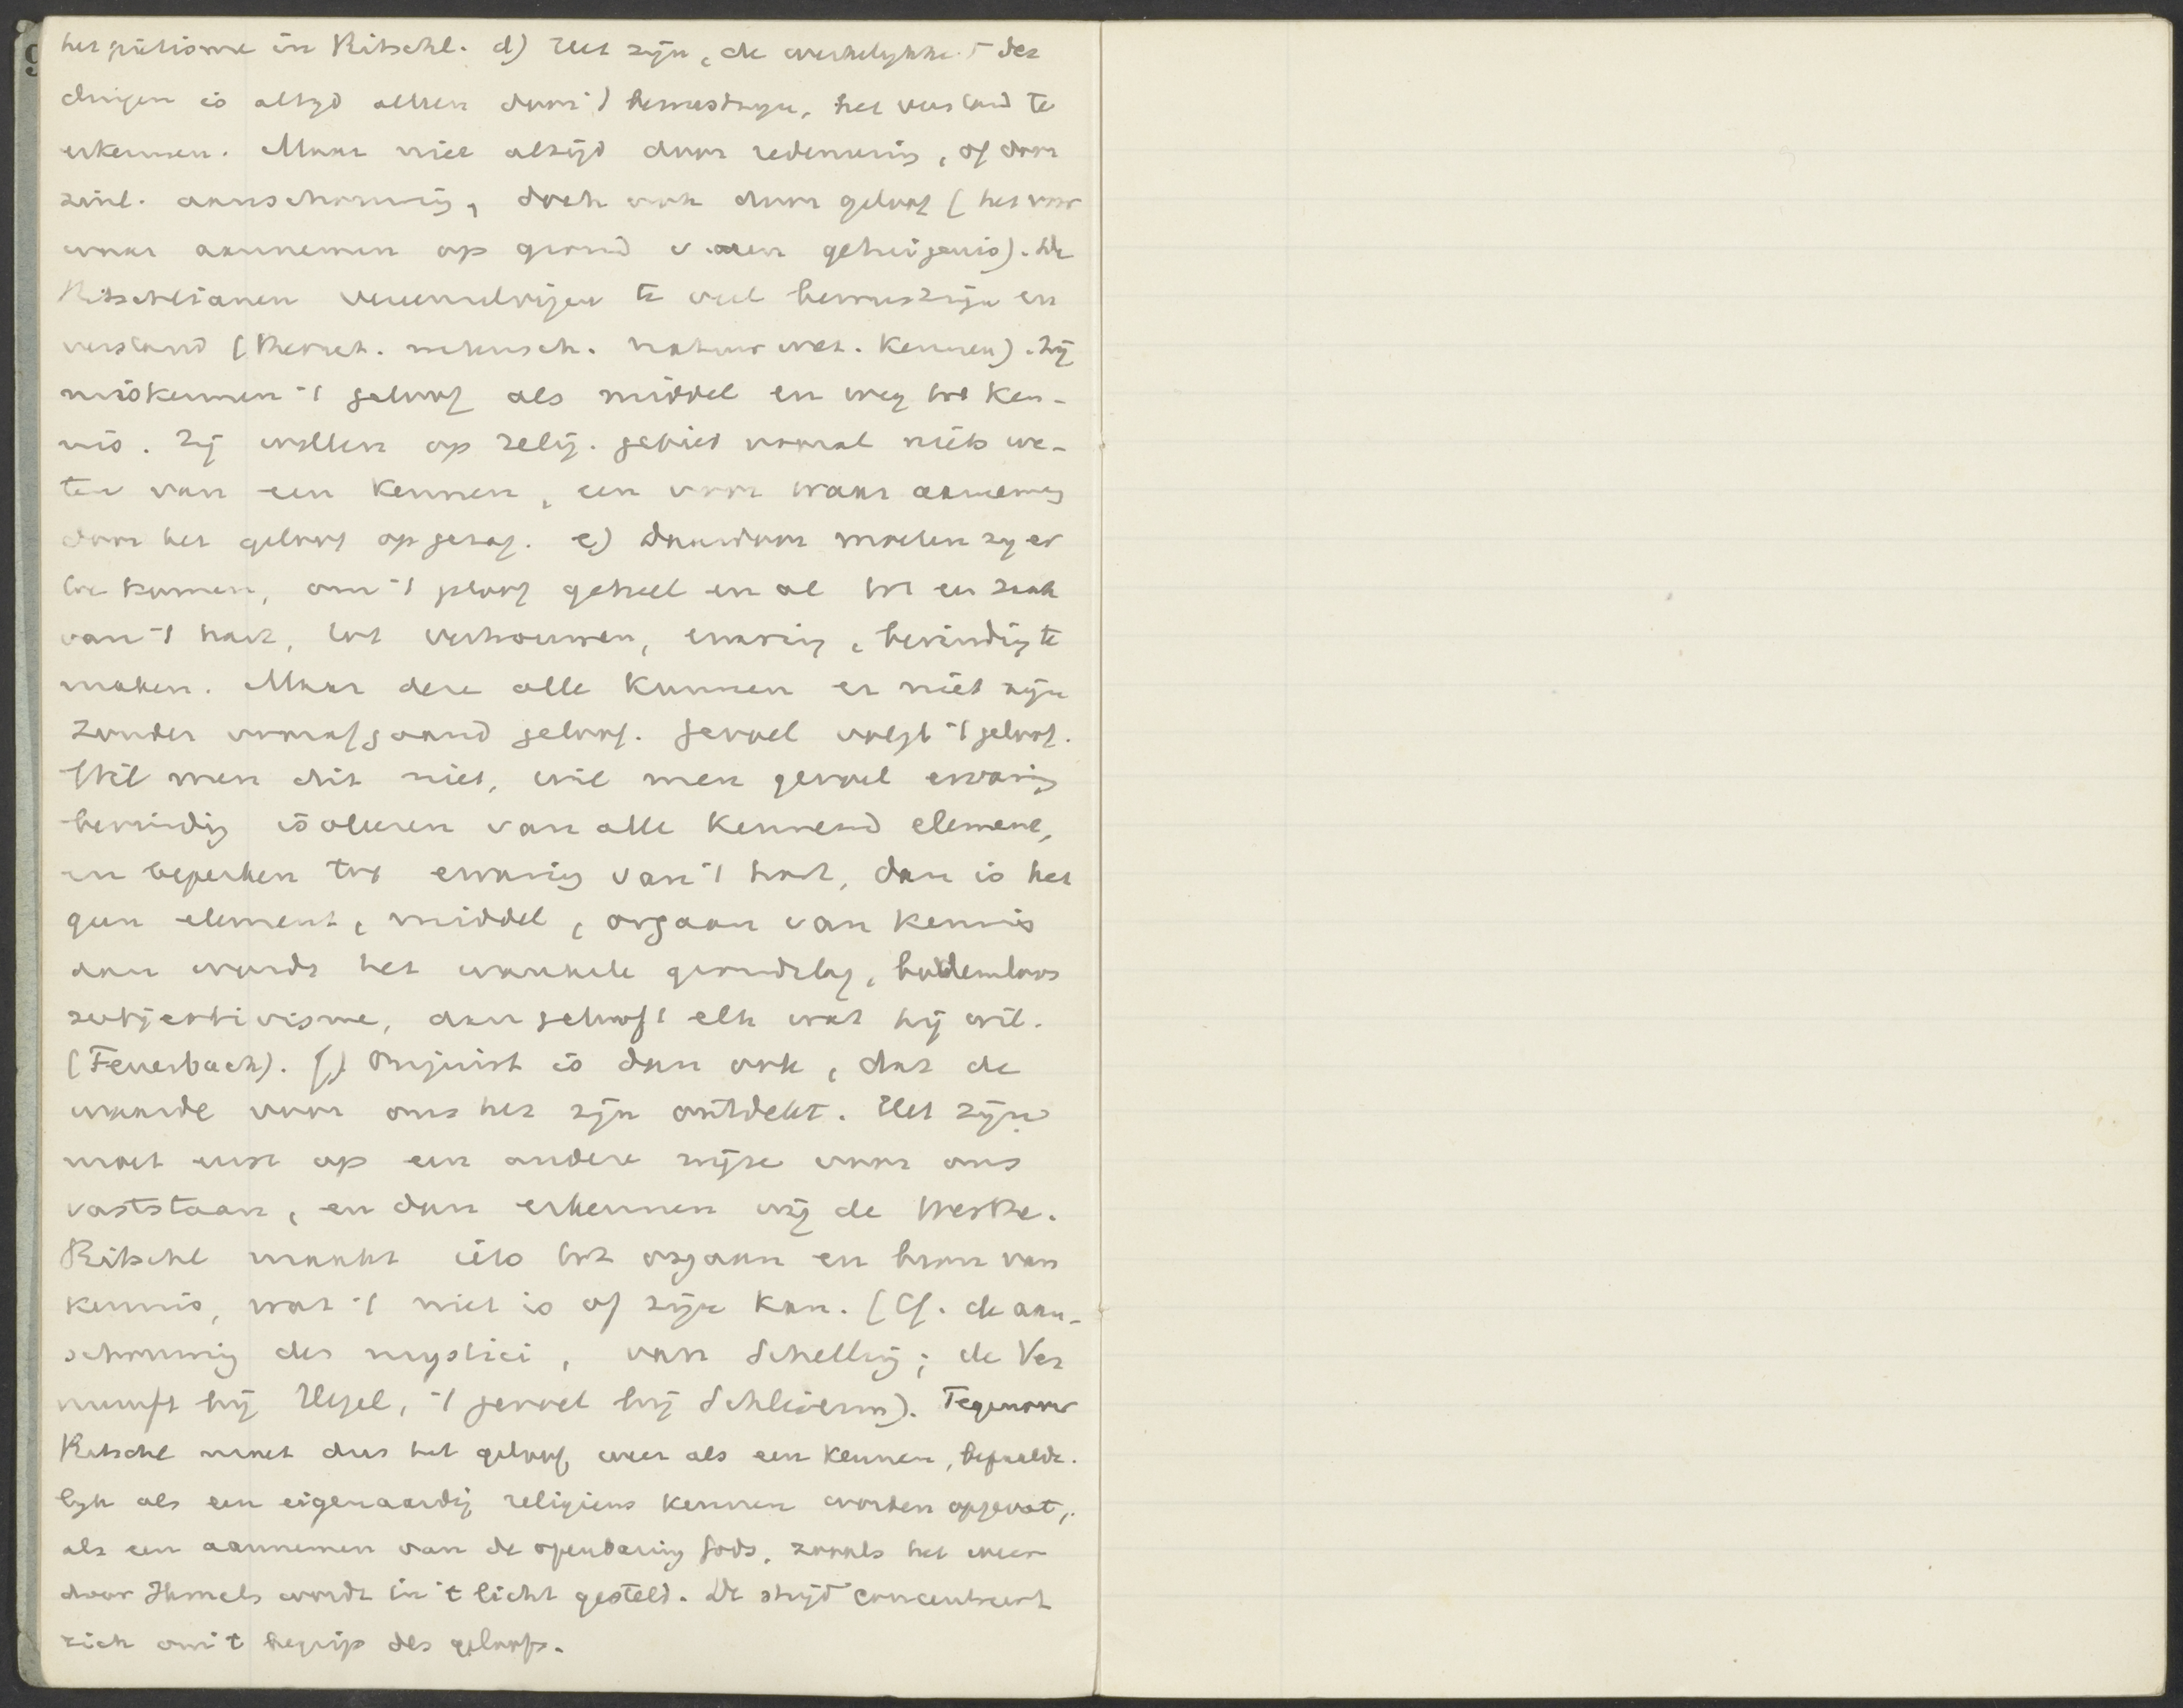 het piëtisme in Ritschl. d) Het zijn, de werkelijkh. der
dingen is altyd alleen door 't bewustzyn, het verstand te
erkennen. Maar niet altijd door redeneering, of door
zinl. aanschouwing, doch ook door geloof (het voor
waar aannemen op grond v. een getuigenis). De
Ritschlianen vereenzelvigen te veel bewustzijn en
verstand (theoret. mechanisch. natuurwet. kennen). Zij
miskennen 't geloof als middel en weg tot ken-
nis. Zij willen op relig. gebied vooral niets we-
ten van een kennen, een voor waar aanneming
door het geloof op gezag. e) Daardoor moeten zy er
toe komen, om 't geloof geheel en al tot een zaak
van 't hart, tot vertrouwen, ervaring, bevinding te
maken. Maar deze alle kunnen er niet zijn
zonder voorafgaand geloof. Gevoel volgt 't geloof.
Wil men dit niet, wil men gevoel ervaring
bevinding isoleeren van alle kennend element,
en beperken tot ervaring van 't hart, dan is het
geen element, middel, orgaan van kennis
dan wordt het wankele grondslag, bodemloos
subjectivisme, dan gelooft elk wat hij wil.
(Feuerbach). f) Onjuist is dan ook, dat de
waarde voor ons het zijn ontdekt. Het zijn
moet eerst op een andere wijze voor ons
vaststaan, en dan erkennen wij de Werthe.
Ritschl maakt iets tot orgaan en bron van
kennis, wat 't niet is of zijn kan. (Cf. de aan-
schouwing der mystici, van Schelling; de Ver
nunft bij Hegel, 't gevoel bij Schleierm). Tegenover
Ritschl moet dus het geloof weer als een kennen, bepaalde-
lyk als een eigenaardig religieus kennen worden opgevat,
als een aannemen van de openbaring Gods, zooals het weer
door Ihmels wordt in 't licht gesteld. De strijd concentreert
zich om 't begrip des geloofs.